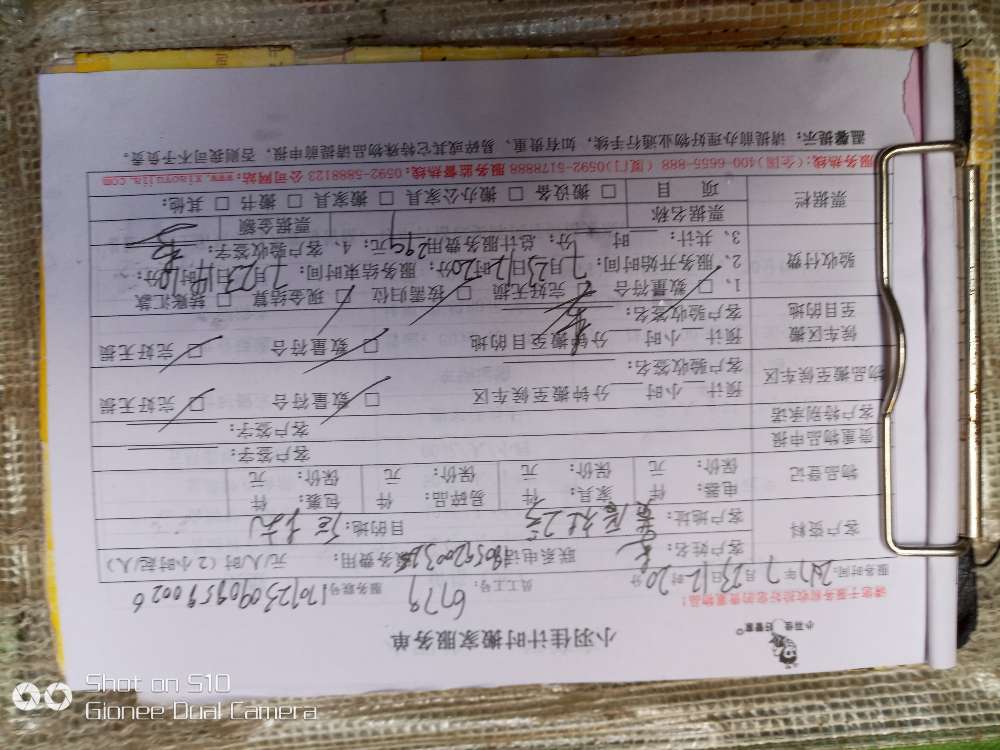 小羽佳 好管家
小羽佳计时搬家服务单
请您于服务前收拾好您的贵重物品!
服务时间: 2017年7月23日12时20分 员工工号: 6779 服务联号:
客户资料 客户姓名: 联系电话: 服务费用: 元/人/时 (2小时起/人)
客户地址: 目的地:
物品登记 电器: 件 家具: 件 易碎品: 件 包裹: 件
保价: 元 保价: 元 保价: 元 保价: 元
贵重物品申报 客户签字:
客户特别承诺 客户签字:
物品搬至候车区 预计 小时 分钟搬至候车区 □ 数量符合 □ 完好无损
客户验收签名:
候车区搬至目的地 预计 小时 分钟搬至目的地 □ 数量符合 □ 完好无损
客户验收签名:
验收付费 1、□ 数量符合 □ 完好无损 □ 按需归位 □ 现金结算 □ 转账汇款
2、服务开始时间: 7月23日12时20分; 服务结束时间: 7月23日14时10分;
3、共计: 时 分; 总计服务费用 299元; 4、客户验收签字:
票据栏 票据名称 票据金额
项目 □ 搬设备 □ 搬办公家具 □ 搬家具 □ 搬书 □ 其他:
服务热线: (全国) 400-6655-888 (厦门) 0592-5178888 服务监督热线: 0592-5888123 公司网站: www.xiaoyujia.com
温馨提示: 请提前办理好物业通行手续, 如有贵重、易碎或其它特殊物品请提前申报, 否则我司不予负责。
Shot on S10
Gionee Dual Camera